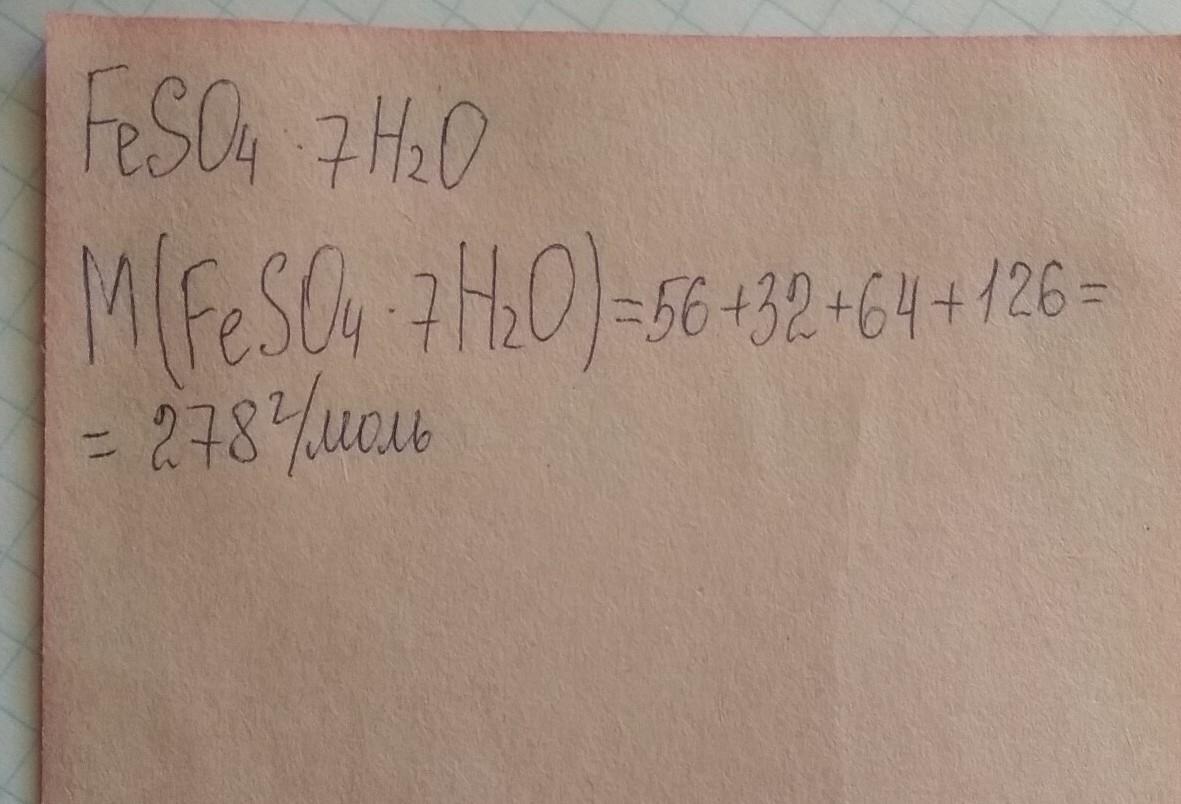 FeSO₄ · 7H₂O
M(FeSO₄ · 7H₂O) = 56 + 32 + 64 + 126 =
= 278 г/моль